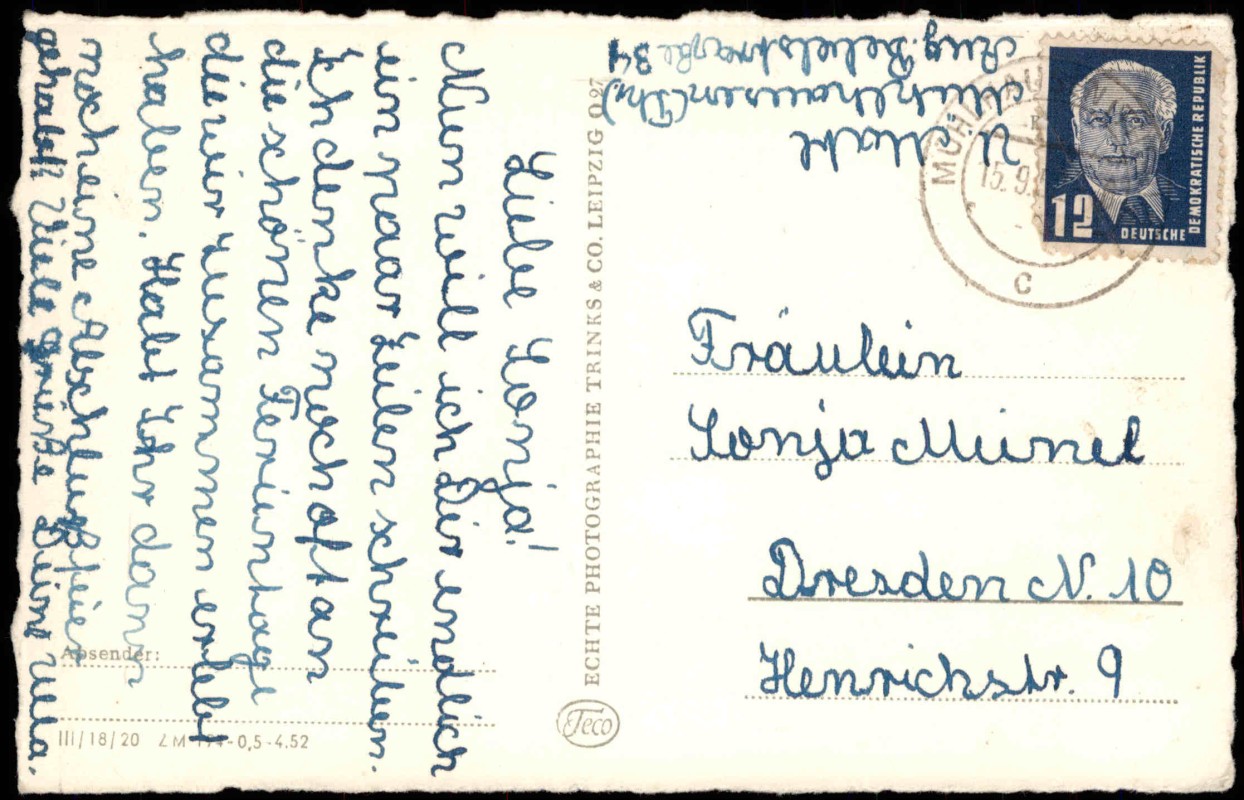 Liebe Sonja!
Nun will ich Dir endlich
ein paar Zeilen schreiben.
Ich denke noch oft an
die schönen Ferientage
die wir zusammen erlebt
haben. Habt Ihr dann
noch eine Abschlußfeier
gehabt? Viele Grüße Deine Ulla.
Absender:
III/18/20
-0,5-4.52
ECHTE PHOTOGRAPHIE TRINKS & CO. LEIPZIG O 27
Teco
U.
Mühlhausen (Thr)
Aug. Bebelstraße 34
15.9.
C
12
DEUTSCHE
DEMOKRATISCHE REPUBLIK
Fräulein
Sonja Meinel
Dresden N. 10
Henrichstr. 9